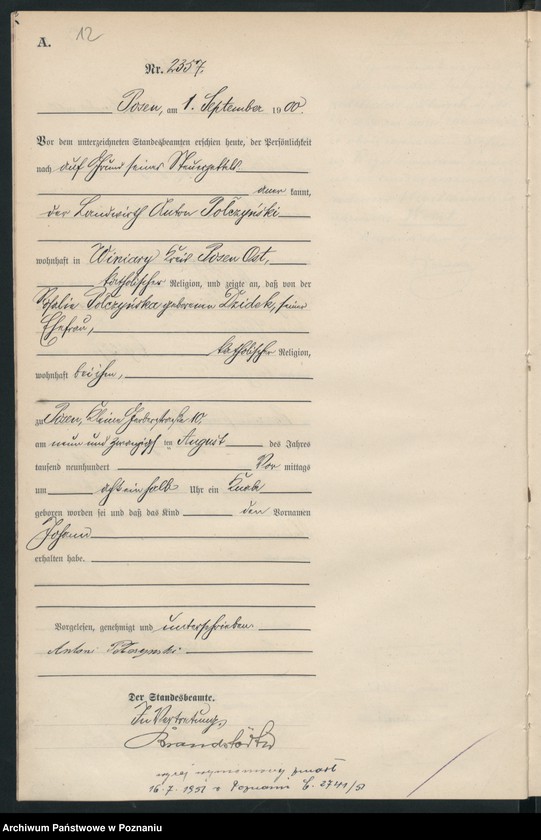 A. 12
Nr. 2357.
Posen, am 1. September 1900.
Vor dem unterzeichneten Standesbeamten erschien heute, der Persönlichkeit
nach auf Grund seines Steuerzettels
aner kannt,
der Landwirth Anton Polczyński
wohnhaft in Winiary Kreis Posen Ost,
katholischer Religion, und zeigte an, daß von der
Polczyńska geborenen Dzidek, seiner
Ehefrau,
katholischer Religion,
wohnhaft bei ihm,
zu Posen, Kleine Gerberstraße 10,
am neun und zwanzigsten August des Jahres
tausend neunhundert Vor mittags
um acht ein halb Uhr ein Knabe
geboren worden sei und daß das Kind den Vornamen
Johann
erhalten habe.
Vorgelesen, genehmigt und unterschrieben
Antoni
Der Standesbeamte.
In Vertretung,
Brandstädter
wyżej wymieniony zmarł
16.7.1951 w Poznaniu 2741/51
Archiwum Państwowe w Poznaniu